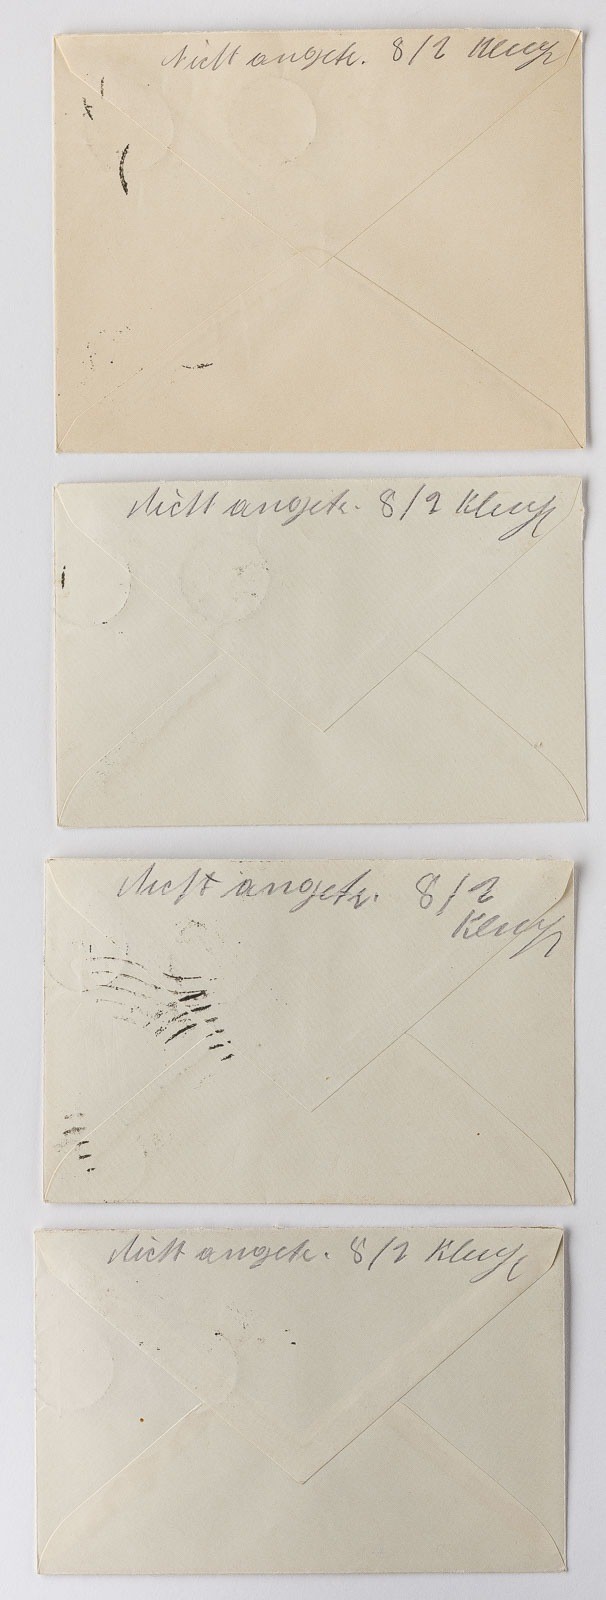 Nicht angetr. 8/2
Nicht angetr. 8/2
Nicht angetr. 8/2
Nicht angetr. 8/2